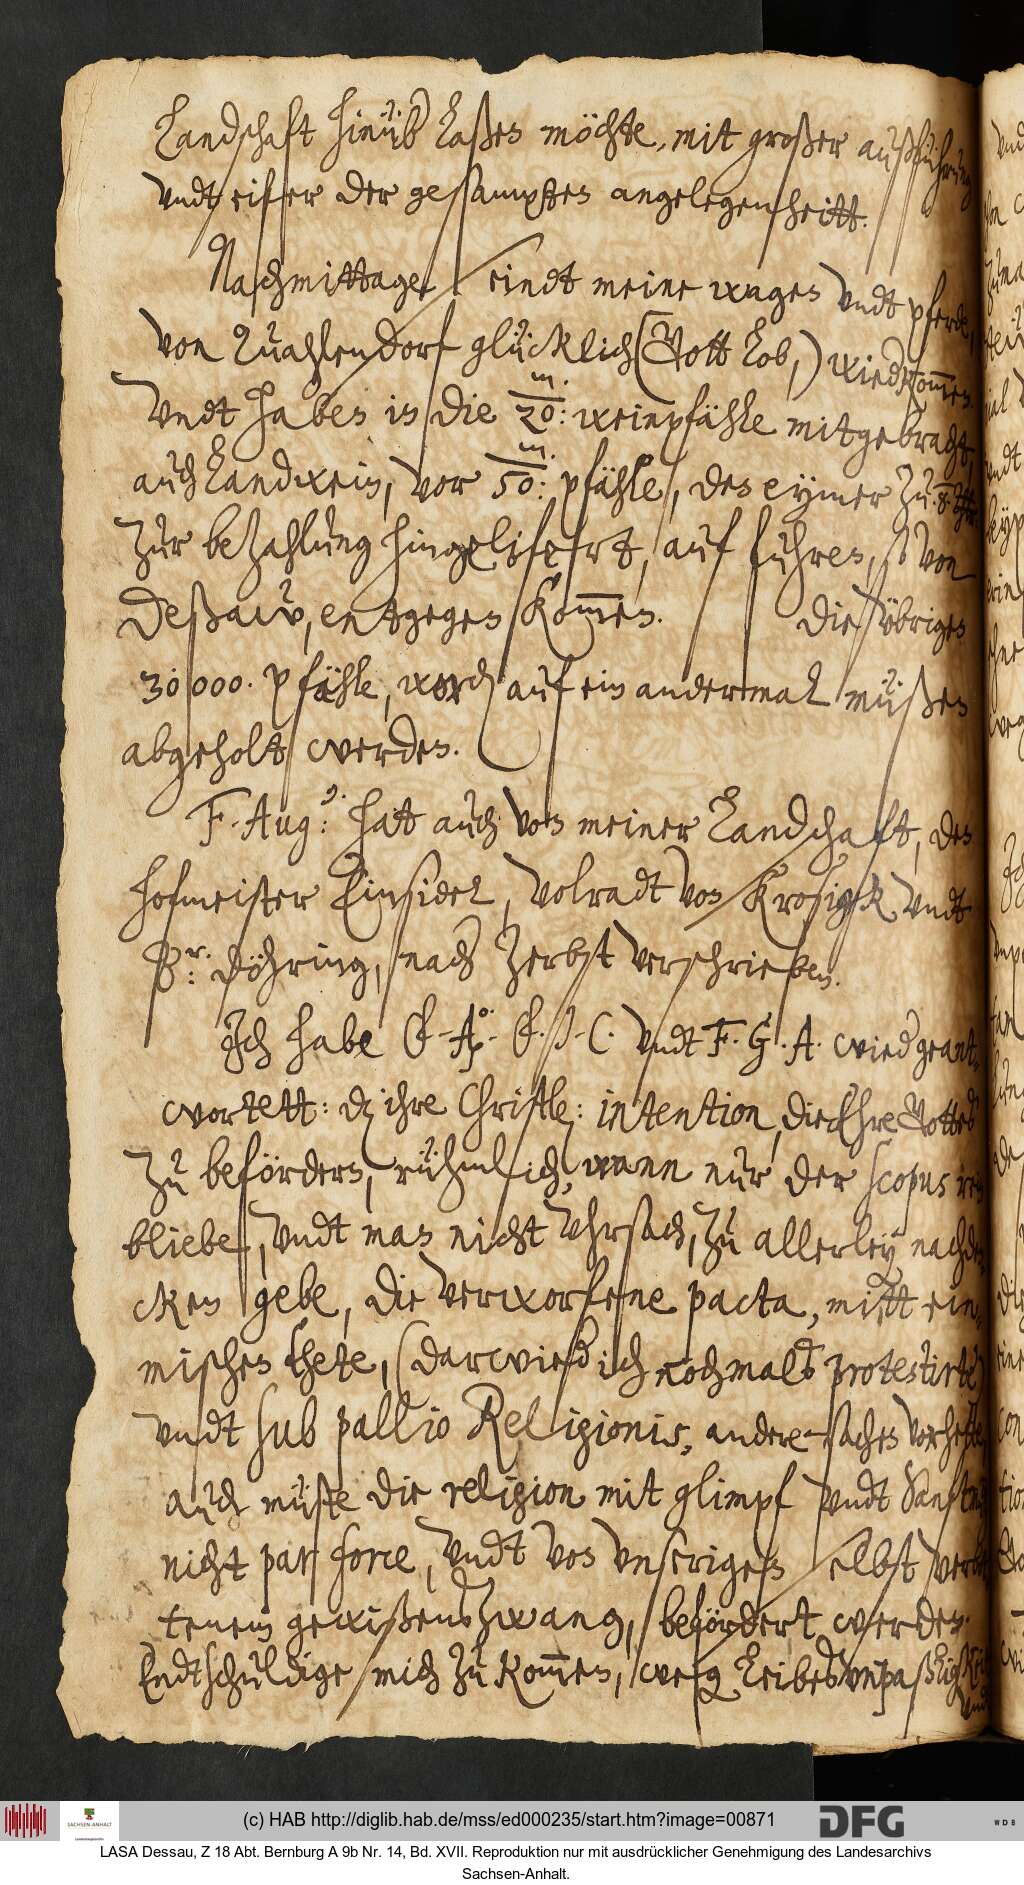 Landschaft hinüber laßen möchte, mit großer außführung
undt eifer der gesampten angelegenheitt.
Nachmittages seindt meine wagen undt pferde,
von Quahlendorf glücklich (Gott lob,) wiedkommen.
Undt haben in die 20: m. weinpfähle mitgebracht,
auch Landwein, vor 50: m. pfähle, den eymer zu
zur bezahlung hingeliefert, auf fuhren, so von
Deßaw, entgegen kommen. Die übrigen
30000. pfähle, werden auf ein andermal müßen
abgeholt werden.
F. Aug: hatt auch von meiner Landschaft, den
hofmeister Einsidel, Volradt von Krosigk undt
Dr: Döhring, nach Zerbst verschrieben.
Ich habe undt F. G. A. wieder geant-
wortett: daß ihre Christle: intention, die Ehre Gottes
zu befördern, rühmlich, wann nur der scopus rein
bliebe, undt man nicht uhrsach, zu allerley nachden-
cken gebe, die verworfene pacta, mitt ein-
mischen thete, (darwieder ich nochmals protestirte)
undt sub pallio Religionis, andere sachen
auch müste die religion mit glimpf undt Sanftmuht
nicht par force, undt von unserigen selbst verbo-
tenem gewißens Zwang, befördert werden.
Endtschuldige mich zu kommen, wegen Leibes unpaßligkeit
undt
(c) HAB http://diglib.hab.de/mss/ed000235/start.htm?image=00871
SACHSEN-ANHALT
DFG
WDB
LASA Dessau, Z 18 Abt. Bernburg A 9b Nr. 14, Bd. XVII. Reproduktion nur mit ausdrücklicher Genehmigung des Landesarchivs
Sachsen-Anhalt.